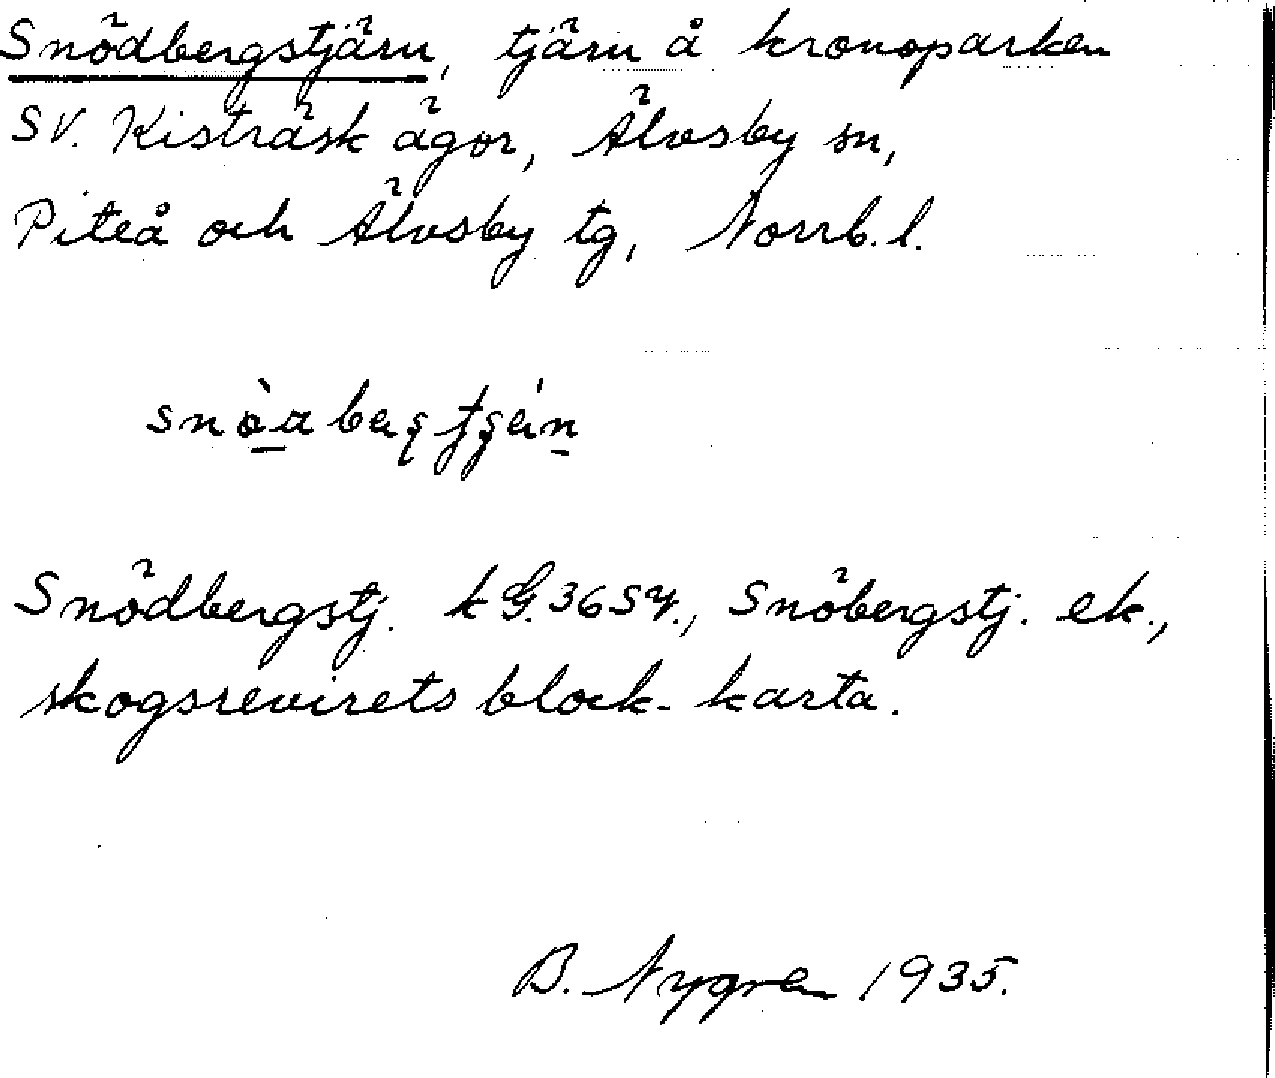 Snödbergstjärn, tjärn å kronoparken
SV. Kisträsk ägor, Älvsby sn,
Piteå och Älvsby tg, Norrb. l.
Snödbergstj. kG.36SY., Snöbergstj. ek.,
skogsrevirets block-karta.
B. Nygren 1935.